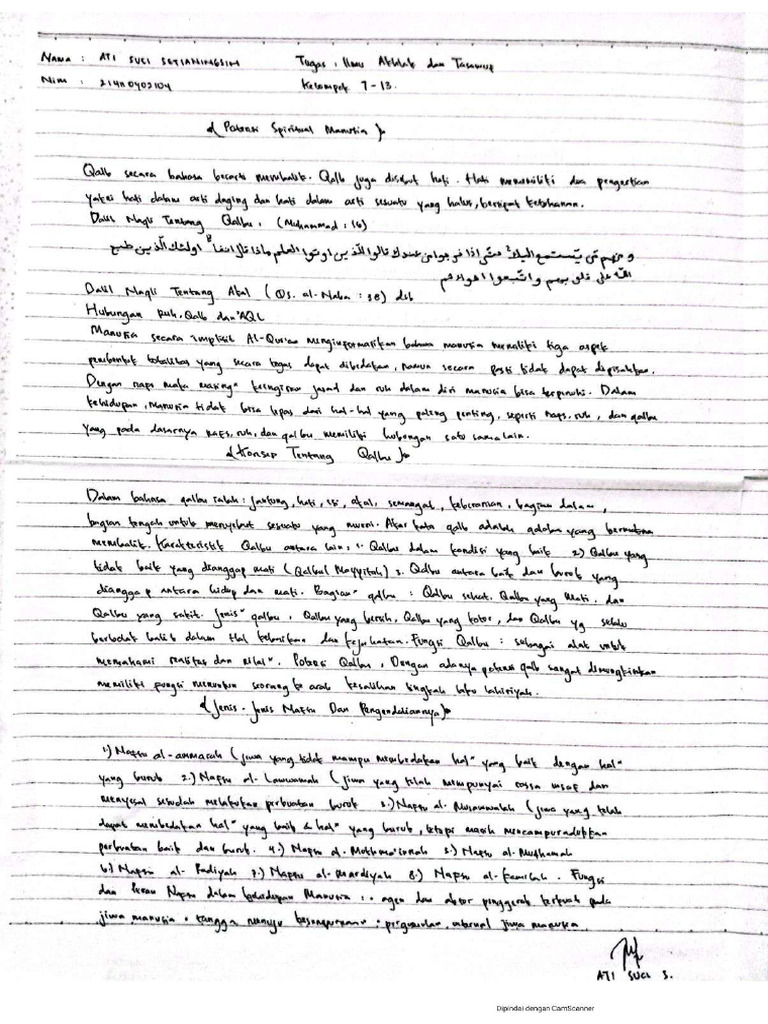 Nama : ATI SUCI SETIANINGSIH Tugas : Ilmu Akhlak dan Tasawuf
Nim : 214110402104 Kelompok 7-13.
{ Potensi Spiritual Manusia }
Qalb secara bahasa berarti membalik. Qalb juga disebut hati. Hati memiliki dua pengertian
yakni hati dalam arti daging dan hati dalam arti sesuatu yang halus, bersipat ketuhanan.
Dalil Naqli Tentang Qalbu, (Muhammad : 16)
ومنهم من يستمع اليك حتى اذا خرجوا من عندك قالوا للذين اوتوا العلم ماذا قال انفا اولئك الذين طبع
الله على قلوبهم واتبعوا اهواءهم
Dalil Naqli Tentang Akal (Qs. al-Naba : 38) dsb
Hubungan Ruh, Qalb dan AQL
Manusia secara implisit Al-Qur'an menginformasikan bahwa manusia memiliki tiga aspek
pembentuk totalitas yang secara tegas dapat dibedakan, Namun secara pasti tidak dapat dipisahkan.
Dengan naps maka masing" keinginan jasad dan ruh dalam diri manusia bisa terpenuhi. Dalam
kehidupan, manusia tidak bisa lepas dari hal-hal yang paling penting, seperti naps, ruh, dan qalbu
yang pada dasarnya nafs, ruh, dan qalbu memiliki hubungan satu sama lain.
{ Konsep Tentang Qalbu }
Dalam bahasa qalbu ialah : jantung, hati, isi, akal, semangat, keberanian, bagian dalam,
bagian tengah untuk menyebut sesuatu yang murni. Akar kata qalb adalah qalaba yang bermakna
membalik. Karakteristik Qalbu antara lain : 1. Qalbu dalam kondisi yang baik 2) Qalbu yang
tidak baik yang dianggap mati (Qalbul Mayyitah) 3. Qalbu antara baik dan buruk yang
dianggap antara hidup dan mati. Bagian" qalbu : Qalbu sehat, Qalbu yang Mati, dan
Qalbu yang sakit. Jenis" qalbu, Qalbu yang bersih, Qalbu yang kotor, dan Qalbu yg selalu
berbolak balik dalam Hal kebaikan dan kejahatan. Fungsi Qalbu : sebagai alat untuk
memahami realitas dan nilai". Potensi Qalbu, Dengan adanya potensi qalb sangat dimungkinkan
memiliki fungsi menuntun seorang ke arah kesalihan tingkah laku lahiriyah.
{ Jenis - Jenis Nafsu Dan Pengendaliannya }
1.) Napsu al-ammarah (jiwa yang tidak mampu membedakan hal" yang baik dengan hal"
yang buruk 2.) Napsu al-Lawwamah (jiwa yang telah mempunyai rassa insaf dan
menyesal sesudah melakukan perbuatan buruk 3.) Napsu al-Musawwalah (jiwa yang telah
dapat membedakan hal" yang baik & hal" yang buruk, tetapi masih mencampuradukkan
perbuatan baik dan buruk. 4.) Napsu al-Muthma'innah 5.) Napsu al-Mulhamah
6.) Napsu al-Radiyah 7.) Napsu al-mardiyah 8.) Napsu al-kamilah. Fungsi
dan Peran Napsu dalam kehidupan Manusia : • agen dan aktor penggerak terkuat pada
jiwa manusia • tangga menuju kesempurnaan • pergumulan internal jiwa manusia.
ATI SUCI S.
Dipindai dengan CamScanner